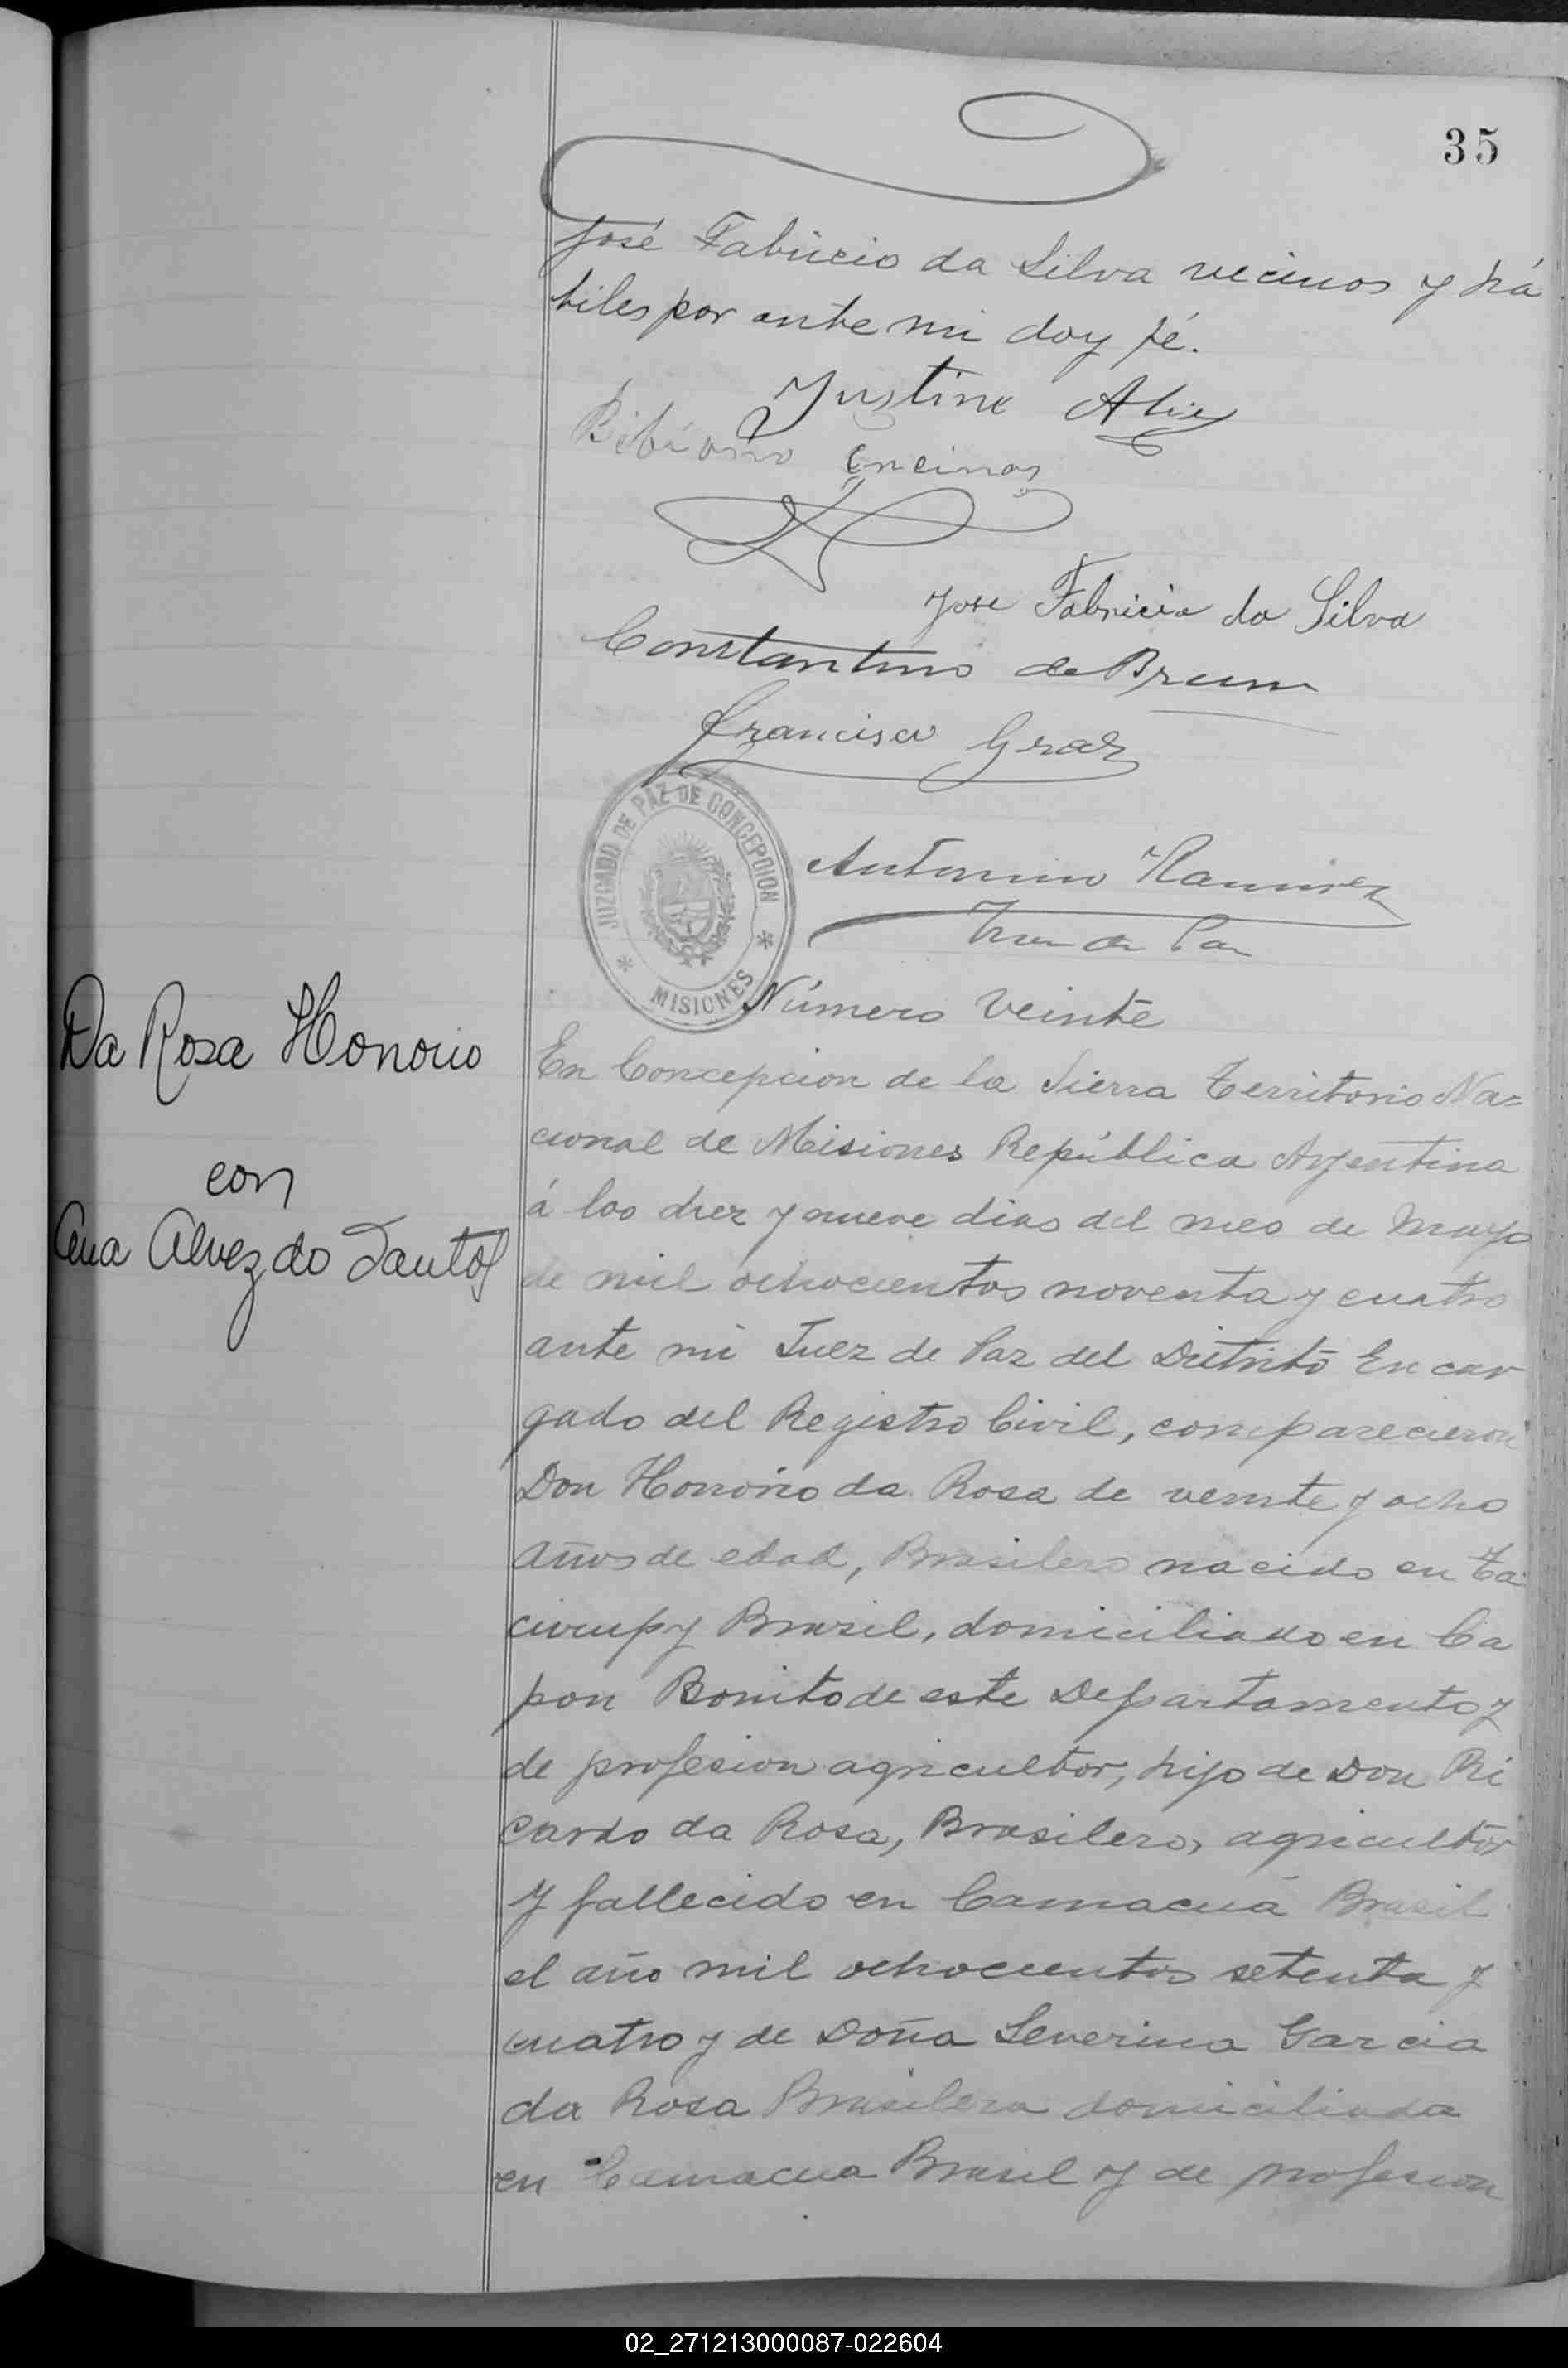 35
José Fabricio da Silva vecinos y há
biles por ante mi doy fé.
Justino
Bibiano Encinas
Jose Fabricio da Silva
Constantino de Brum
Francisco
JUZGADO DE PAZ DE CONCEPCION
* MISIONES *
Antonino Ramirez
Juez de Paz
Número Veinte
Da Rosa Honorio
con
Ana Alvez do Santos
En Concepcion de la Sierra Territorio Na=
cional de Misiones República Argentina
á los diez y nueve dias del mes de Mayo
de mil ochocientos noventa y cuatro
ante mi Juez de Paz del Distrito Encar
gado del Registro Civil, comparecieron
Don Honorio da Rosa de veinte y ocho
años de edad, Brasilero nacido en
Brasil, domiciliado en Ca
pon Bonito de este Departamento y
de profesion agricultor, hijo de Don Ri
cardo da Rosa, Brasilero, agricultor
y fallecido en Camacuá Brasil
el año mil ochocientos setenta y
cuatro y de Doña Severina Garcia
da Rosa Brasilera domiciliada
en Camacua Brasil y de profesion
02_271213000087-022604